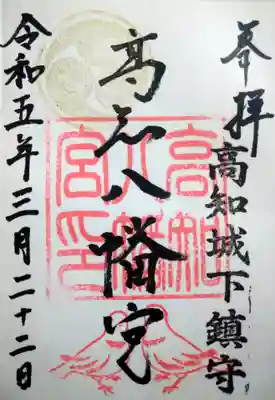 奉拝
高知城下鎮守
高知八幡宮
高知
八幡
宮印
令和五年三月二十二日